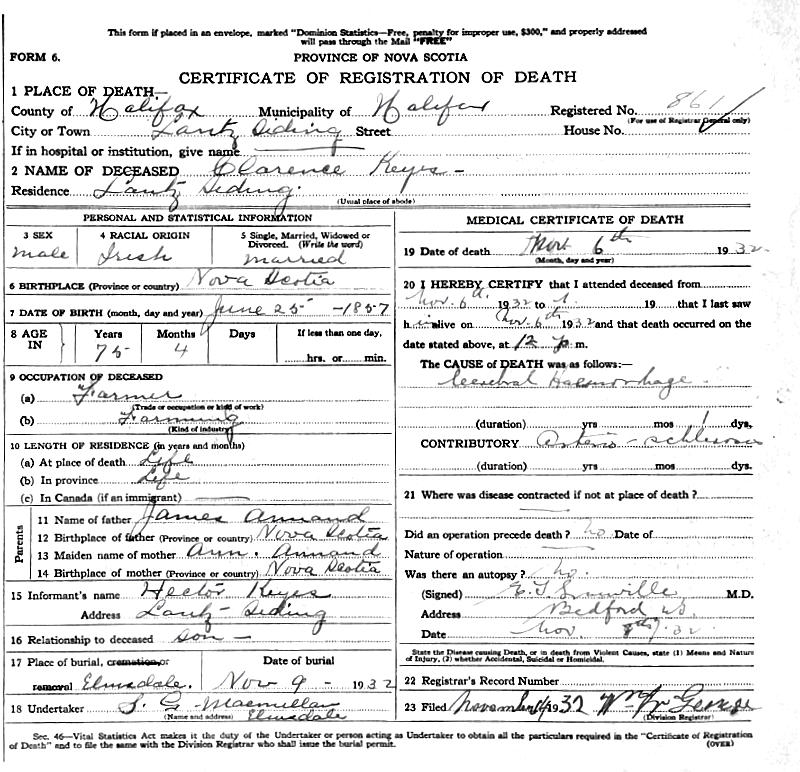 This form if placed in an envelope, marked "Dominion Statistics—Free, penalty for improper use, $300," and properly addressed
will pass through the Mail "FREE"
FORM 6.
PROVINCE OF NOVA SCOTIA
CERTIFICATE OF REGISTRATION OF DEATH
1 PLACE OF DEATH—
County of Halifax Municipality of Halifax Registered No. 861
(For use of Registrar General only)
City or Town Lantz Siding Street House No.
If in hospital or institution, give name
2 NAME OF DECEASED Clarence Keyes -
Residence Lantz Siding.
(Usual place of abode)
PERSONAL AND STATISTICAL INFORMATION
3 SEX 4 RACIAL ORIGIN 5 Single, Married, Widowed or
Divorced. (Write the word)
male Irish married
6 BIRTHPLACE (Province or country) Nova Scotia
7 DATE OF BIRTH (month, day and year) June 25 - 1857
8 AGE IN Years Months Days If less than one day,
75 4 hrs. or min.
9 OCCUPATION OF DECEASED
(a) Farmer
(Trade or occupation or kind of work)
(b) Farming
(Kind of industry)
10 LENGTH OF RESIDENCE (in years and months)
(a) At place of death Life
(b) In province Life
(c) In Canada (if an immigrant)
Parents
11 Name of father James Annand
12 Birthplace of father (Province or country) Nova Scotia
13 Maiden name of mother Ann. Annand
14 Birthplace of mother (Province or country) Nova Scotia
15 Informant's name Hector Keyes
Address Lantz Siding
16 Relationship to deceased Son -
17 Place of burial, cremation, or Date of burial
removal Elmsdale. Nov 9 - 1932
18 Undertaker S. G. Macmillan
(Name and address) Elmsdale
MEDICAL CERTIFICATE OF DEATH
19 Date of death Nov 6th 1932
(Month, day and year)
20 I HEREBY CERTIFY that I attended deceased from
Nov. 6th 1932 to 19 that I last saw
him alive on Nov. 6th 1932 and that death occurred on the
date stated above, at 12 p m.
The CAUSE OF DEATH was as follows:—
Cerebral Haemorrhage
(duration) yrs mos 1 dys.
CONTRIBUTORY Arterio-schlerosis
(duration) yrs. mos. dys.
21 Where was disease contracted if not at place of death?
Did an operation precede death? no. Date of
Nature of operation
Was there an autopsy? No.
(Signed) M.D.
Address Bedford N.S.
Date Nov. 32
State the Disease causing Death, or in death from Violent Causes, state (1) Means and Nature
of Injury, (2) whether Accidental, Suicidal or Homicidal.
22 Registrar's Record Number
23 Filed November 1932 George
(Division Registrar)
Sec. 46—Vital Statistics Act makes it the duty of the Undertaker or person acting as Undertaker to obtain all the particulars required in the "Certificate of Registration
of Death" and to file the same with the Division Registrar who shall issue the burial permit. (OVER)